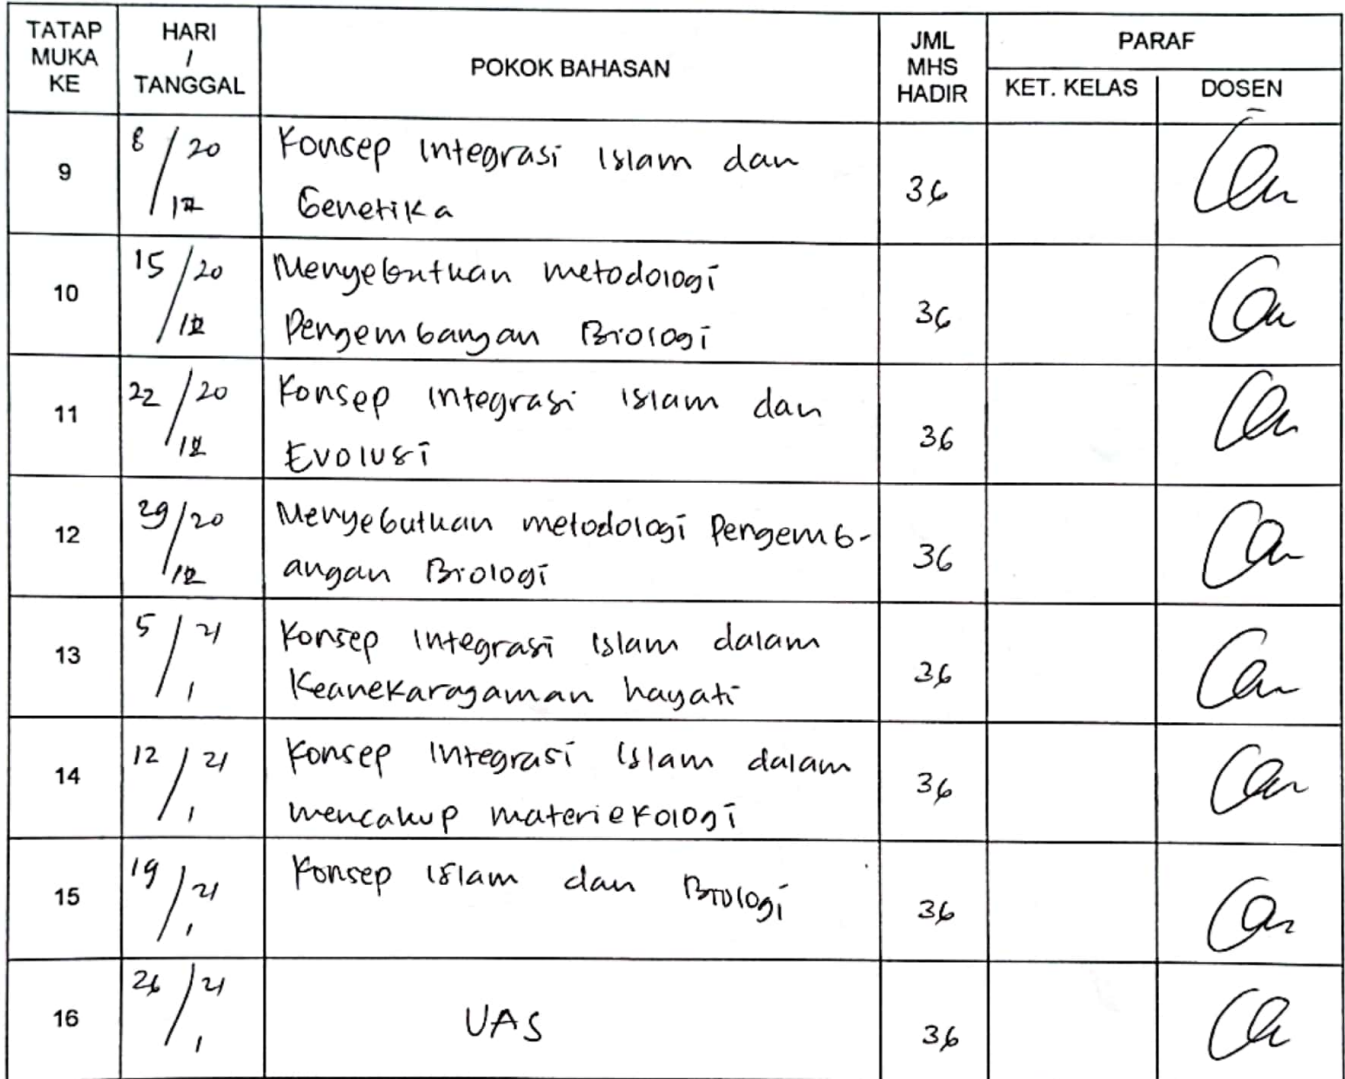 TATAP MUKA KE
HARI / TANGGAL
POKOK BAHASAN
JML MHS HADIR
PARAF
KET. KELAS
DOSEN
9
8/20
12
Konsep Integrasi Islam dan
Genetika
36
10
15/20
12
Menyebutkan metodologi
Pengembangan Biologi
36
11
22/20
12
Konsep Integrasi Islam dan
Evolusi
36
12
29/20
12
Menyebutkan metodologi Pengemb-
angan Biologi
36
13
5/21
1
Konsep Integrasi Islam dalam
Keanekaragaman hayati
36
14
12/21
1
Konsep Integrasi Islam dalam
mencakup materi ekologi
36
15
19/21
1
Konsep Islam dan Biologi
36
16
26/21
1
UAS
36